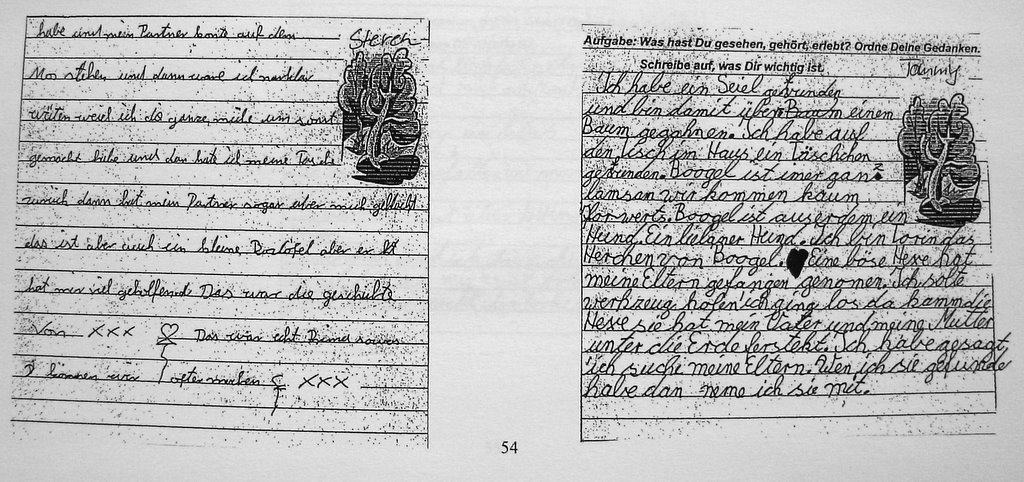 habe und mein Partner konte auf dem
Sterch
Mos stehen und dann ware ich
weil ich das ganze, müle um sonst
gemacht habe und dan hate ich meine Tasche
zurück dann hat mein Partner sogar über mich gelacht
das ist aber auch ein kleine, aber er
hat mir viel geholfen Das war die geschichte
Von XXX Das war echt
können wir öfter machen XXX
Aufgabe: Was hast Du gesehen, gehört, erlebt? Ordne Deine Gedanken.
Schreibe auf, was Dir wichtig ist.
Tommy
Ich habe ein Seiel gefunden
und bin damit über Baum einem
Baum gegahnen. Ich habe auf
den Tisch im Haus ein Täschchen
gefunden. Boogel ist imer gan?
lamsan wir kommen kaum
Vorwerts. Boogel ist auserdem ein
Hund. Ein lieligner Hund. Ich bin Loren das
Herchen von Boogel. Eine böse Hexe hat
meine Eltern gefangen genomen. Ich solte
werkzeug holen ich ging los da kamm die
Hexe sie hat mein Vater und meine Mutter
unter die Erde ferstekt. Ich habe gesagt
ich suche meine Eltern. Wen ich sie gefunde
habe dan neme ich sie mit.
54